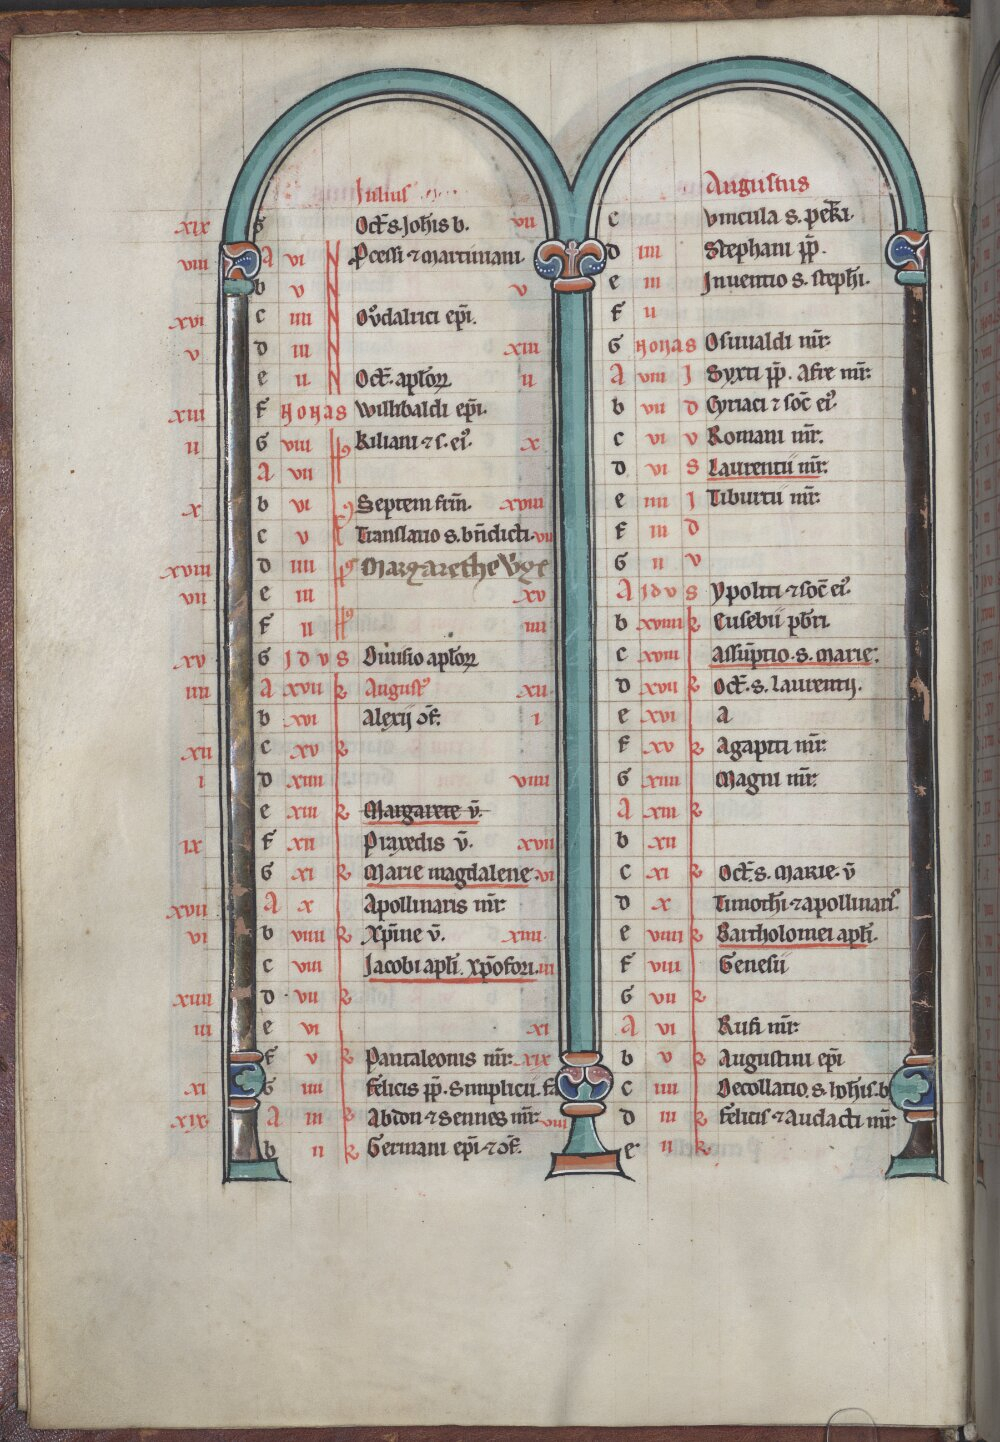 Julius
xix G Oct̄. s. Joħis b.
viii A vi N P̄cessi ⁊ martiniani
b v
xvi c iiii Ov̊dalrici ep̄i.
v d iii
e ii N Oct̄. ap̄loꝝ
xiii F Nonas Willibaldi ep̄i.
ii G viii Kiliani ⁊ s. ei⁹.
A vii
x b vi Septem fr̄m.
c v Translatio s. bn̄dicti
xviii d iiii Margarethe v̄gē
vii e iii
F ii
xv G Idvs Diuisio ap̄loꝝ
iiii A xvii R August⁹
b xvi Alexij ɔf̄.
xii c xv R
i d xiiii
e xiii R Margarete v̄.
ix F xii Praxedis v̄.
G xi R Marie magdalene
xvii A x Apollinaris mr̄:
vi b viiii R Xp̄ine v̄.
c viii Jacobi ap̄li. xp̄ofori.
xiiii d vii R
iii e vi
F v R Pantaleonis mr̄:
xi G iiii felicis pp̄. Simplicii. fa
xix A iii R Abdon ⁊ sennes mr̄:
b ii R Germani ep̄i ⁊ ɔf̄.
Augustus
vii c vincula s. pet̄ri.
d iiii Stephani pp̄.
v e iii Inuentio s. steph̄i.
F ii
xiii G Nonas Osuualdi mr̄:
ii A viii I Syxti pp̄. Afre mr̄:
b vii D Cyriaci ⁊ soc̄ ei⁹.
x c vi V Romani mr̄.
d vi S Laurentii mr̄:
xviii e iiii I Tiburtii mr̄:
vii F iii D
G ii V
xv A Idvs Ypoliti ⁊ soc̄ ei⁹.
iiii b xviiii R Eusebii pb̄ri.
c xviii Assūptio. s. marie.
xii d xvii R Oct̄. s. laurentij.
i e xvi A
F xv R Agapiti mr̄:
viiii G xiiii Magni mr̄:
A xiii R
xvii b xii
vi c xi R Oct̄. s. Marie. v̄
d x Timoth̄i ⁊ apollinar⁹.
xiiii e viiii R Bartholomei ap̄li.
iii F viii Genesii
G vii R
xi A vi Rufi mr̄:
xix b v R Augustini ep̄i
c iiii Decollatio. s. ioħis. b
viii d iii R felicis ⁊ Audacti mr̄:
e ii R